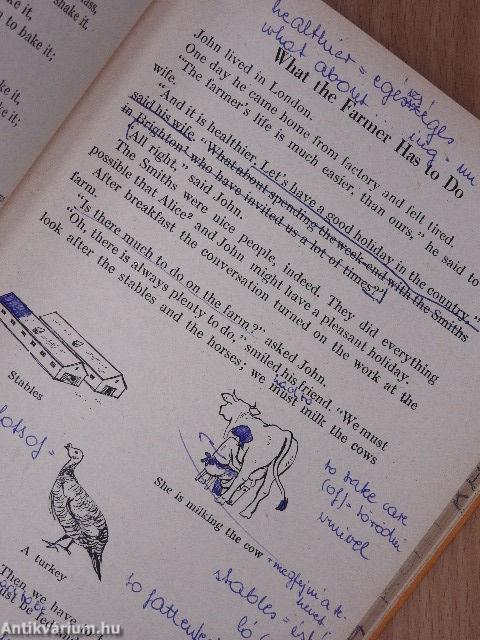 shake it.
to bake it;
healthier = egészséges
what about
What the Farmer Has to Do
John lived in London.
One day he came home from factory and felt tired.
"The farmer's life is much easier, than ours," he said to
wife.
"And it is healthier. Let's have a good holiday in the country,"
said his wife. "What about spending the week-end with the Smiths
in Brighton¹ who have invited us a lot of times?"
"All right," said John.
The Smiths were nice people, indeed. They did everything
possible that Alice² and John might have a pleasant holiday.
After breakfast the conversation turned on the work at the
farm.
"Is there much to do on the farm?" asked John.
"Oh, there is always plenty to do," smiled his friend. "We must
look after the stables and the horses; we must milk the cows
had to
Stables
lots of =
She is milking the cow
A turkey
to take care
(of) = törődni
vmivel
Then we have
stables =
ló
Antikvárium.hu